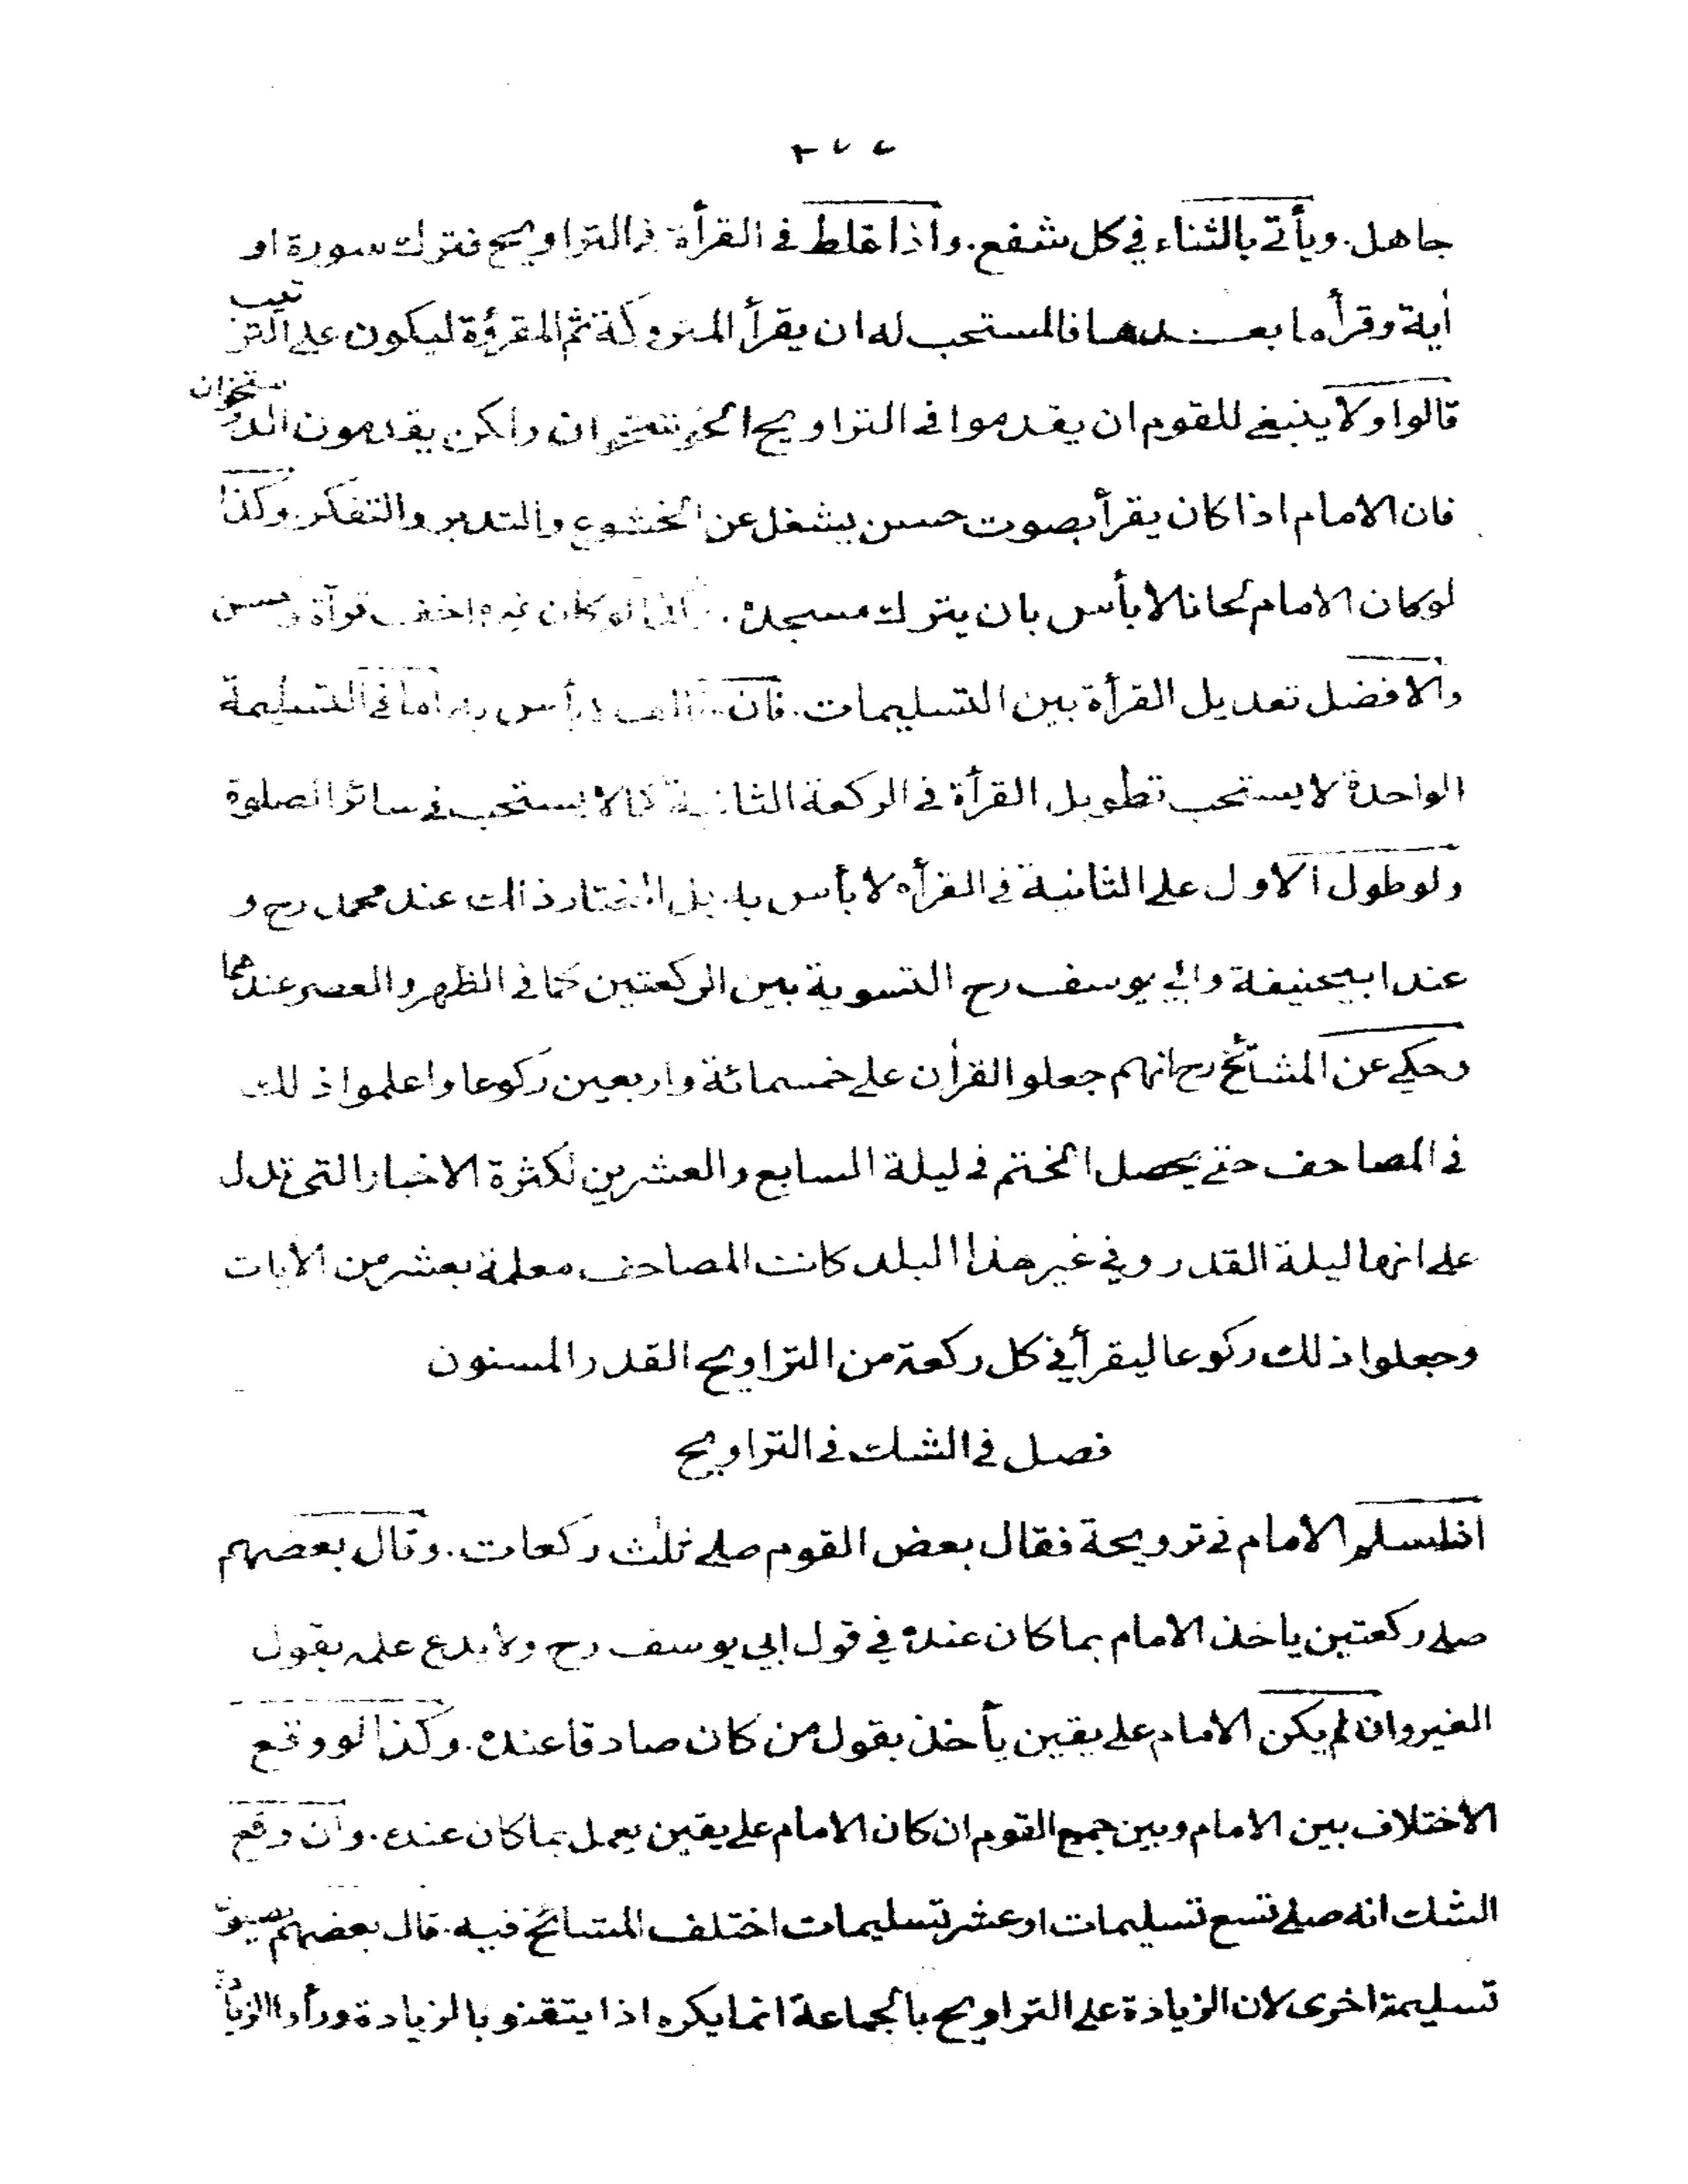 جاهل. ويأتى بالثناء في كل شفع. واذا غلط فى القرأة فى التراويح فترك سورة او
أية وقرأ ما بعدها فالمستحب له ان يقرأ المتروكة ثم المقرؤة ليكون على الترتيب
قالوا ولا ينبغى للقوم ان يقدموا فى التراويح الخوشخوان ولكن يقدمون الدرستخوان
فان الامام اذا كان يقرأ بصوت حسن يشغل عن الخشوع والتدبر والتفكر. وكذا
لو كان الامام لحانا لا بأس بان يترك مسجده. وكذا لو كان غيره اخف قرأة وحسن
والافضل تعديل القرأة بين التسليمات. فان خالف لا بأس به. اما فى التسليمة
الواحدة لا يستحب تطويل القرأة فى الركعة الثانية كما لا يستحب فى سائر الصلوة
ولو طول الاول على الثانية فى القرأه لا بأس به بل المختار ذالك عند محمد رح و
عند ابيحنيفة وابي يوسف رح التسوية بين الركعتين كما فى الظهر والعصر عندهما
وحكى عن المشائخ رح انهم جعلو القرأن على خمسمائة واربعين ركوعا واعلموا ذلك
فى المصاحف حتى يحصل الختم فى ليلة السابع والعشرين لكثرة الاخبار التى تدل
على انها ليلة القدر وفي غير هذا البلد كانت المصاحف معلمة بعشر من الأيات
وجعلوا ذلك ركوعا ليقرأ في كل ركعة من التراويح القدر المسنون
فصل في الشك فى التراويح
اذا سلم الامام فى ترويحة فقال بعض القوم صلى ثلث ركعات. وقال بعضهم
صلى ركعتين ياخذ الامام بما كان عنده في قول ابي يوسف رح ولا يدع علمه بقول
الغير وان لم يكن الامام على يقين يأخذ بقول من كان صادقا عنده. وكذا لو وقع
الاختلاف بين الامام وبين جميع القوم ان كان الامام على يقين يعمل بما كان عنده. وان وقع
الشك انه صلى تسع تسليمات او عشر تسليمات اختلف المشائخ فيه. قال بعضهم
تسليمة اخرى لان الزيادة على التراويح بالجماعة انما يكره اذا يتقنو بالزيادة ورأوا الزيادة